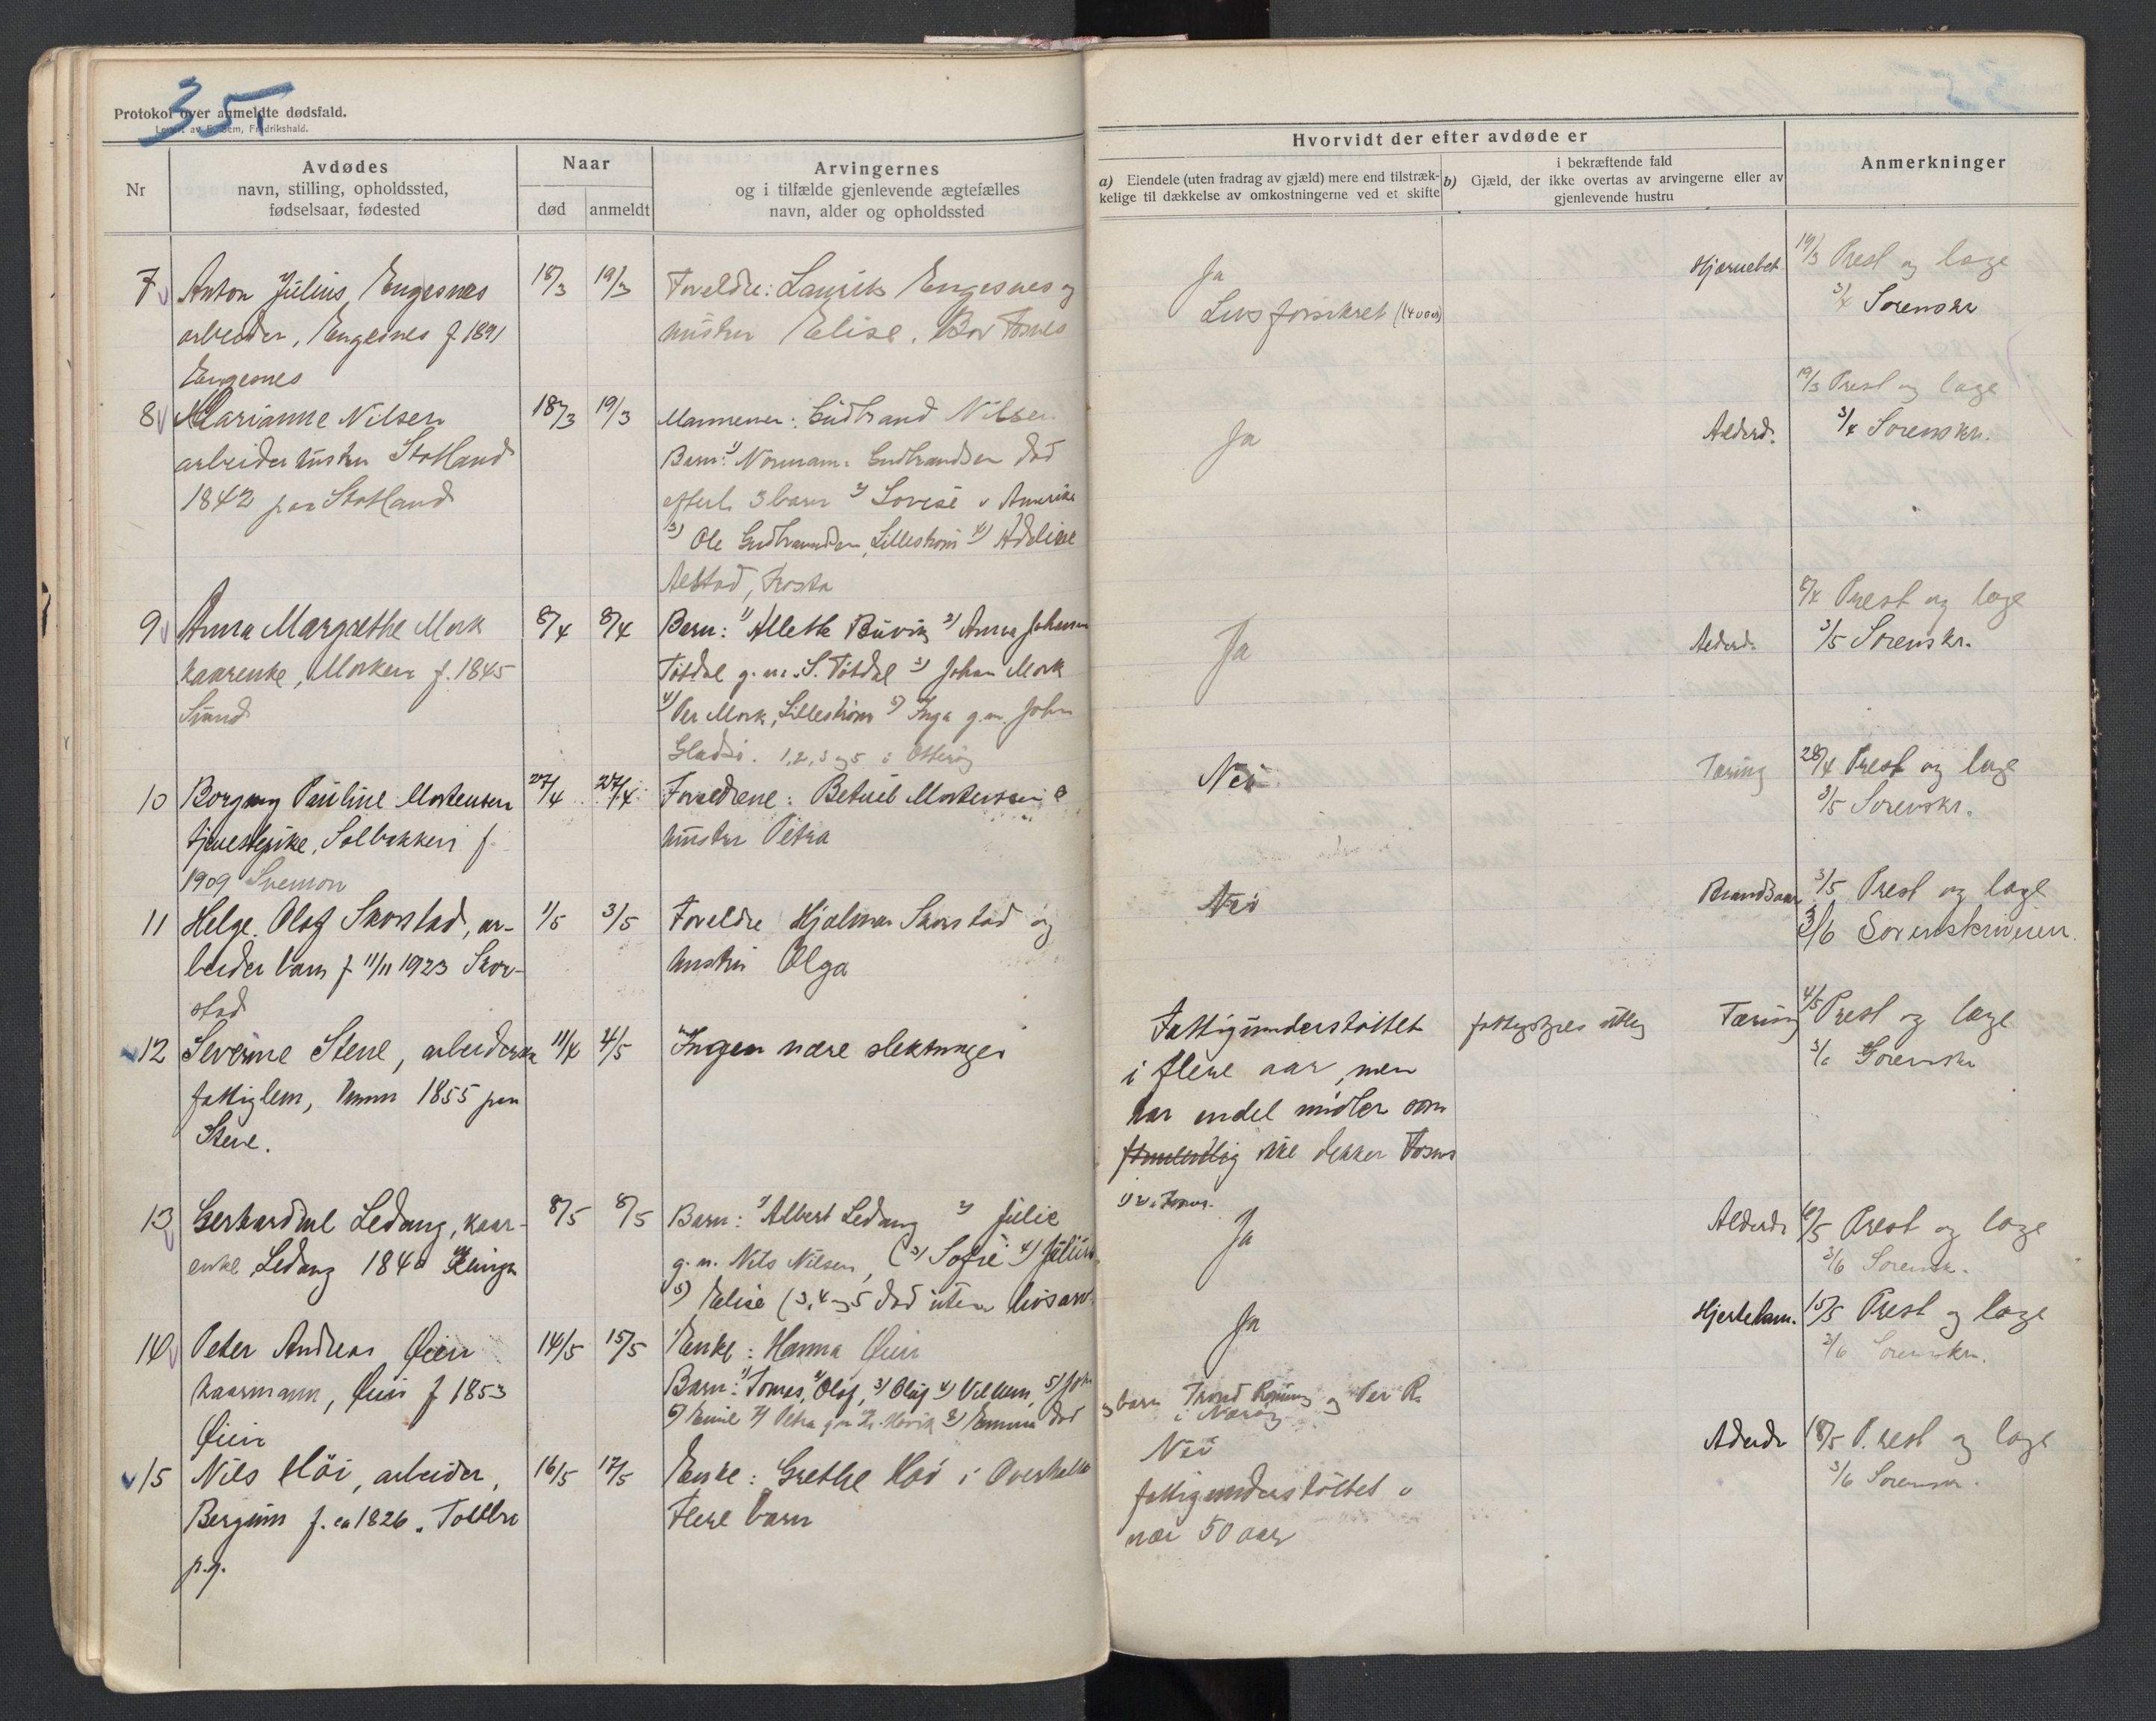 35.
Protokol over anmeldte dødsfald.
Levert av E. Sem, Fredrikshald.
Nr
Avdødes
navn, stilling, opholdssted,
fødselsaar, fødested
Naar
død
anmeldt
Arvingernes
og i tilfælde gjenlevende ægtefælles
navn, alder og opholdssted
Hvorvidt der efter avdøde er
a) Eiendele (uten fradrag av gjæld) mere end tilstræk-
kelige til dækkelse av omkostningerne ved et skifte
i bekræftende fald
b) Gjæld, der ikke overtas av arvingerne eller av
gjenlevende hustru
Anmerkninger
7 Anton Julius Engesnes 18/3 19/3 Foreldre: Laurits Engesnes og Ja 19/3 Prest og læge
arbeider, Engesnes f. 1891 hustru Elise. Bor Fosnes Livsforsikret 3/4 Sorenskr
Engesnes
8 Marianne Nilsen 18/3 19/3 Mannen: Gudbrand Nilsen Ja Alderd. 19/3 Prest og læge
arbeiderhustru Statland Barn: 1) Gudbrandsen død 3/4 Sorenskr.
1842 paa Statland efterl. 3 barn 2) Lovise i Amerika
3) Ole Gudbrandsen, Lillestrøm 4) Adeline
Frosta
9 Anna Margrethe Mork 8/4 8/4 Barn: 1) Allette Buvik 2) Anna Johanna Ja Alderd. 8/4 Prest og læge
kaarenke, Morken f. 1845 Tøtdal g.m. S. Tøtdal 3) Johan Mork 3/5 Sorenskr.
Sund 4) Per Mork, Lillestrøm 5) Inga g.m. John
Gladsø. 1, 2, 3 og 5 i Otterøy
10 Borgny Pauline Mortensen 27/4 27/4 Foreldrene: Betuel Mortensen o Nei Tæring 28/4 Prest og læge
tjenestepike, Solbakken f. hustru Petra 3/5 Sorenskr.
1909
11 Helge Olaf Skorstad, ar- 1/5 3/5 Foreldre Hjalmar Skorstad og Nei Brandsaar 3/5 Prest og læge
beider barn f 11/11 1923 Skor- hustru Olga 3/6 Sorenskriveren.
stad
12 Severine Stene, arbeiderske 11/4 4/5 Ingen nære slektninger Fattigunderstøttet Tæring 4/5 Prest og læge
fattiglem, 1855 paa i flere aar, men 3/6 Sorenskr
Stene. har endel midler som
ikke dekker
13 Gerhardine Ledang, kaar- 8/5 8/5 Barn: 1) Albert Ledang 2) Julie Ja Alderd. Prest og læge
enke Ledang g.m. Nils Nilsen, (3) Sofie 4) Julius 3/6 Sorenskr.
5) Elise (3, 4 og 5 død uten livsarv.
14 Peter Andreas Øien 14/5 15/5 Enke: Hanna Øien Ja Hjertelam. 15/5 Prest og læge
kaarmann, Øien f 1853 Barn: 1) Tomas, 2) Olaf, 3) Oluf 4) Vilhelm, 5) John 3/6 Sorenskr.
Øien 6) Emil 7) Petra død
15 Nils Høi, arbeider, 16/5 17/5 Enke: Grethe Høi i Overhalla Nei Alderd. 18/5 Prest og læge
Bergum f. ca 1826. Flere barn fattigunderstøttet i 3/6 Sorenskr.
p.g. nær 50 aar